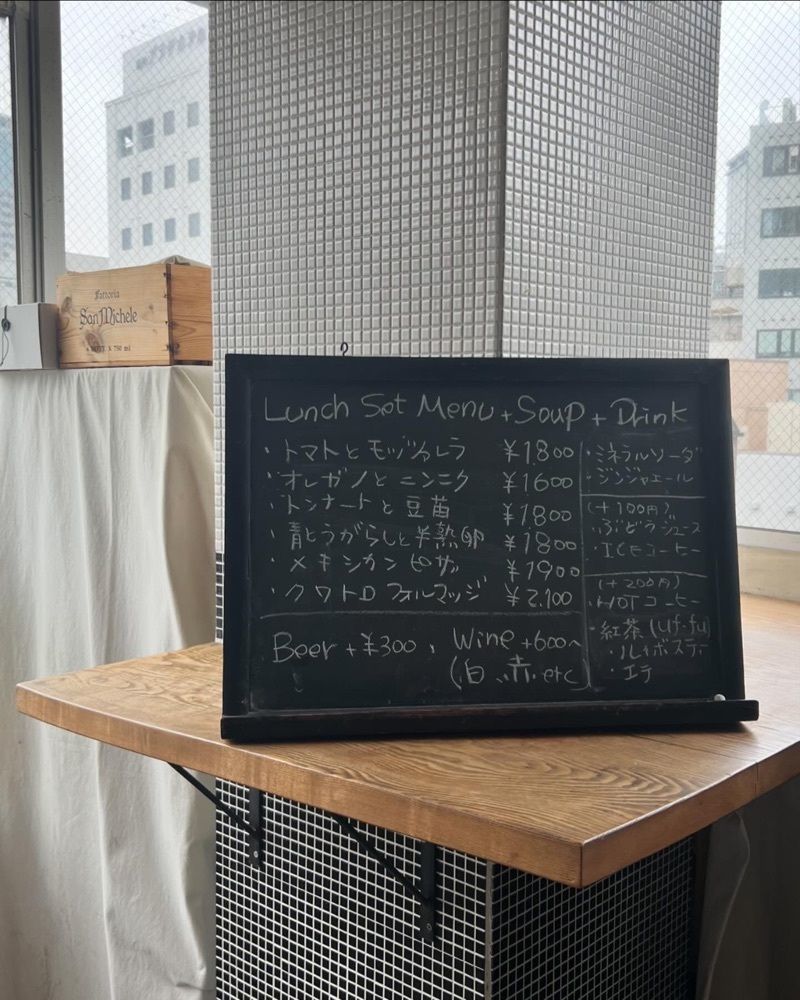 Fattoria
San Michele
Lunch Set Menu + Soup + Drink
・トマトとモッツァレラ ¥1800
・オレガノとニンニク ¥1600
・トンナートと豆苗 ¥1800
・青とうがらしと半熟卵 ¥1800
・メキシカンピザ ¥1900
・クワトロフォルマッジ ¥2.100
Beer + ¥300、Wine +600~
(白、赤.etc)
・ミネラルソーダ
・ジンジャエール
(+100円)
・ぶどうジュース
・ICEコーヒー
(+200円)
・HOTコーヒー
・紅茶(uf-fu)
・ルイボスティー